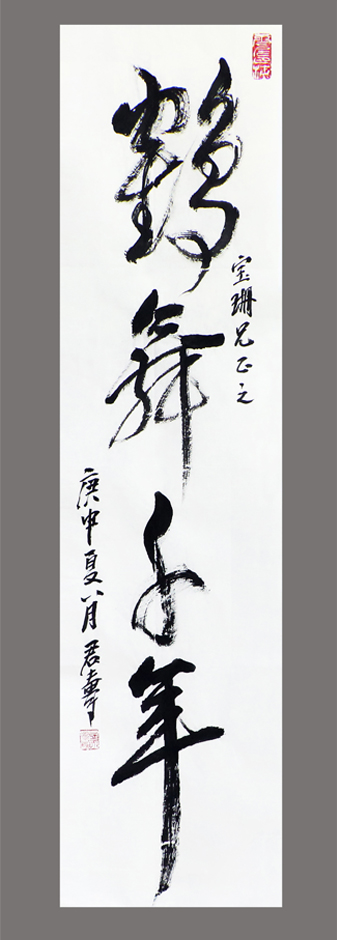 宝珊兄正之
鹤舞千年
庚申夏八月君寿